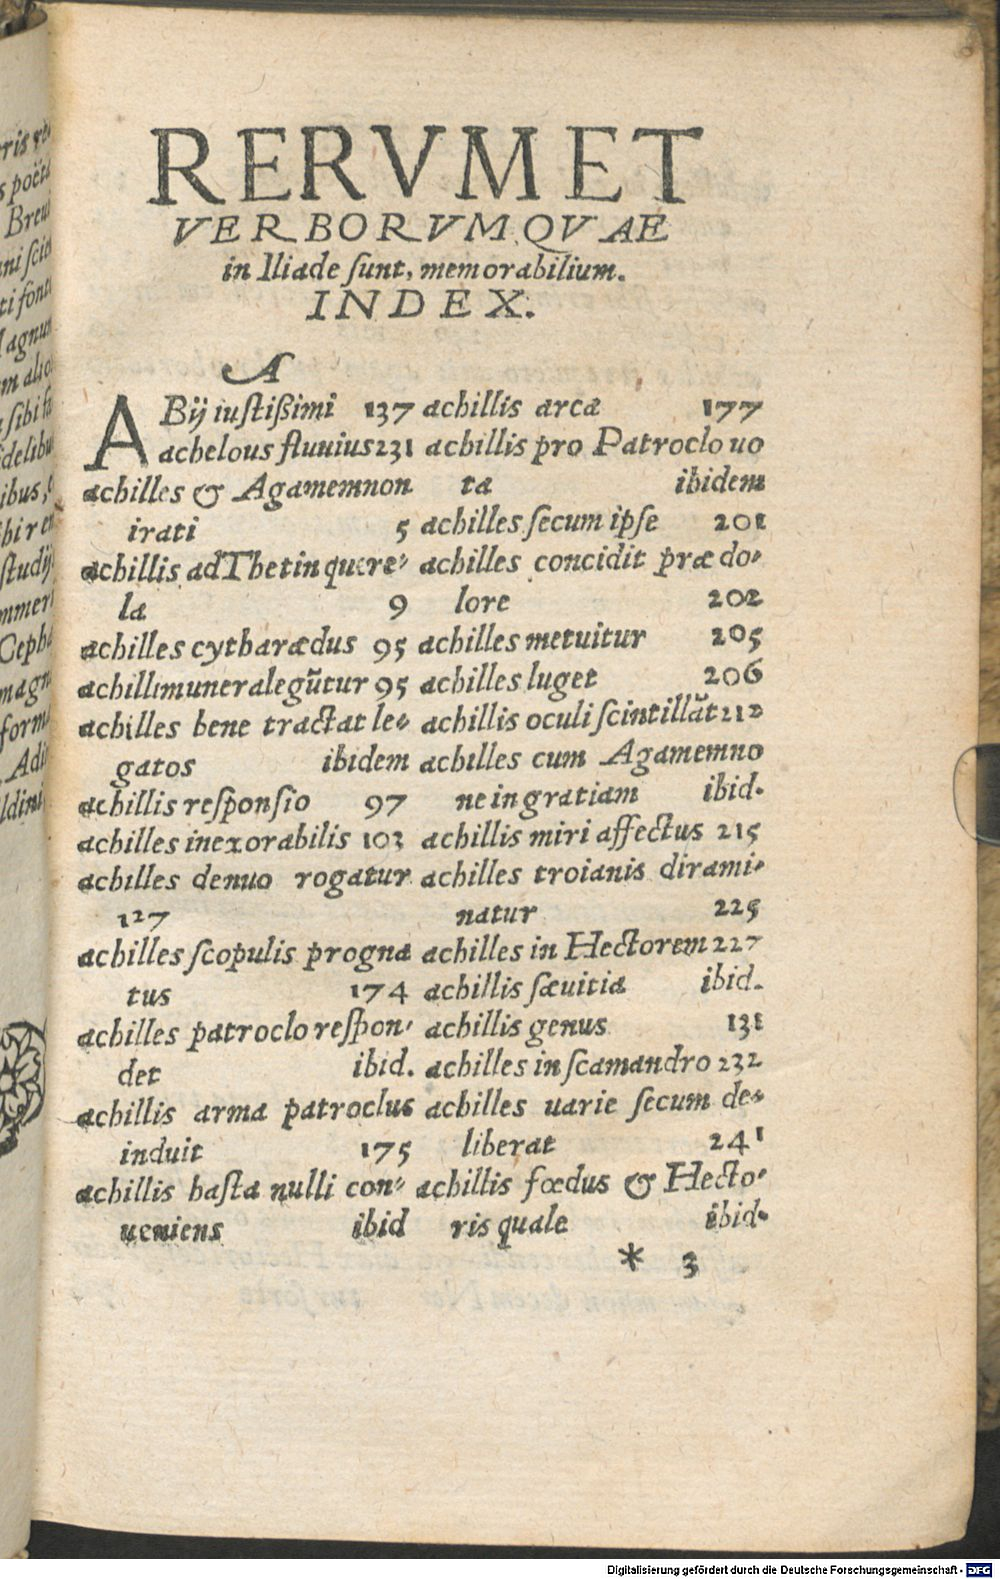 RERVM ET
VERBORVM QVAE
in Iliade ſunt, memorabilium.
INDEX.
A
ABij iuſtißimi 137
achelous fluuius 231
achilles & Agamemnon
irati 5
achillis ad Thetin quere-
la 9
achilles cytharædus 95
achilli munera legūtur 95
achilles bene tractat le-
gatos ibidem
achillis reſponſio 97
achilles inexorabilis 103
achilles denuo rogatur
127
achilles ſcopulis progna
tus 174
achilles patroclo reſpon-
det ibid.
achillis arma patroclus
induit 175
achillis haſta nulli con-
ueniens ibid
achillis arca 177
achillis pro Patroclo uo
ta ibidem
achilles ſecum ipſe 201
achilles concidit præ do-
lore 202
achilles metuitur 205
achilles luget 206
achillis oculi ſcintillāt 212
achilles cum Agamemno
ne in gratiam ibid.
achillis miri affectus 215
achilles troianis dira mi-
natur 225
achilles in Hectorem 227
achillis ſæuitia ibid.
achillis genus 131
achilles in ſcamandro 232
achilles uarie ſecum de-
liberat 241
achillis fœdus & Hecto-
ris quale ibid.
* 3
ris
s poët
Breu
ni ſcie
ti font
agnu
m alio
ſibi
deli
ibus,
hi
ſtudij
mmer
Ceph
magn
form
Adi
ldini
Digitalisierung gefördert durch die Deutsche Forschungsgemeinschaft - DFG